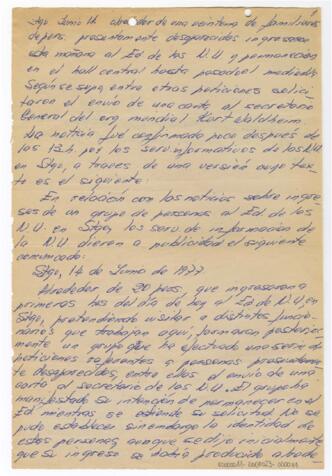 Stgo Junio 14 alrededor de una veintena de familiares
de pers. presuntamente desaparecidos ingresaron
esta mañana al Ed de las N.U y permanecían
en el hall central hasta pasado el mediodía
Según se supo, entre otras peticiones solici-
taron el envío de una carta al secretario
General del org mundial Kurt Waldheim
La noticia fué confirmada poco después de
las 13 h, por los serv. informativos de las N.U
en Stgo, a traves de una versión cuyo tex-
to es el siguiente:
En relación con las noticias sobre ingre-
ses de un grupo de personas al Ed. de las
N.U. en Stgo, los serv. de información de
la N.U dieron a publicidad el siguiente
comunicado:
Stgo, 14 de Junio de 1977
Alrededor de 20 pers, que ingresaron a
primeras hrs del día de hoy al Ed de N.U, en
Stgo, pretendiendo visitar a distintos funcio-
narios que trabajan aquí, formaron posterior-
mente un grupo que ha efectuado una serie de
peticiones referentes a personas presuntamen-
te desaparecidos, entre ellas el envío de una
carta al secretario de las N.U. El grupo ha
manifestado su intención de permanecer en el
Ed mientras se atiende su solicitud. No se
pudo establecer sin embargo la identidad de
estas personas, aunque se dijo inicialmente
que su ingreso se había producido